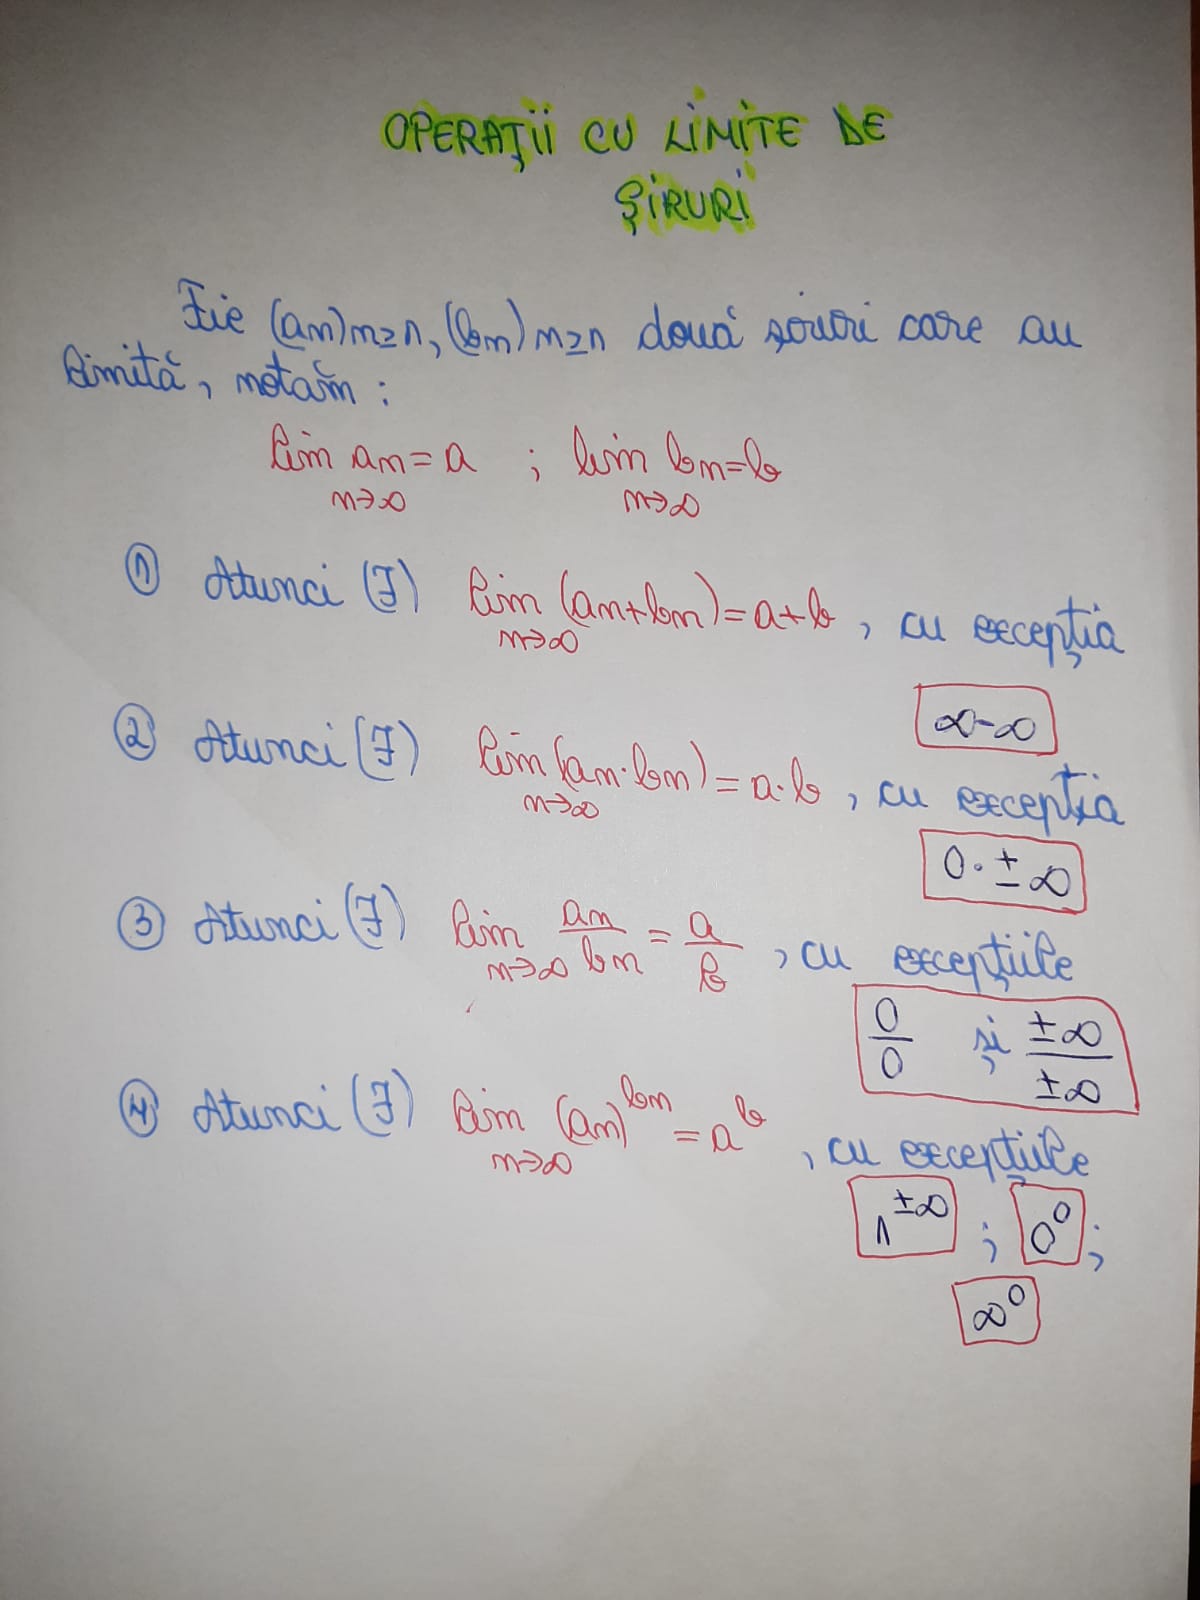 OPERAȚII CU LIMITE DE
ȘIRURI
Fie (an)n≥1, (bn)n≥1 două șiruri care au
limită, notăm:
lim an = a ; lim bn = b
n→∞ n→∞
① Atunci (∃) lim (an+bn) = a+b, cu excepția
n→∞
∞-∞
② Atunci (∃) lim (an·bn) = a·b, cu excepția
n→∞
0·±∞
③ Atunci (∃) lim an/bn = a/b, cu excepțiile
n→∞
0/0 și ±∞/±∞
④ Atunci (∃) lim (an)^bn = a^b, cu excepțiile
n→∞
1^±∞ ; 0^0 ;
∞^0